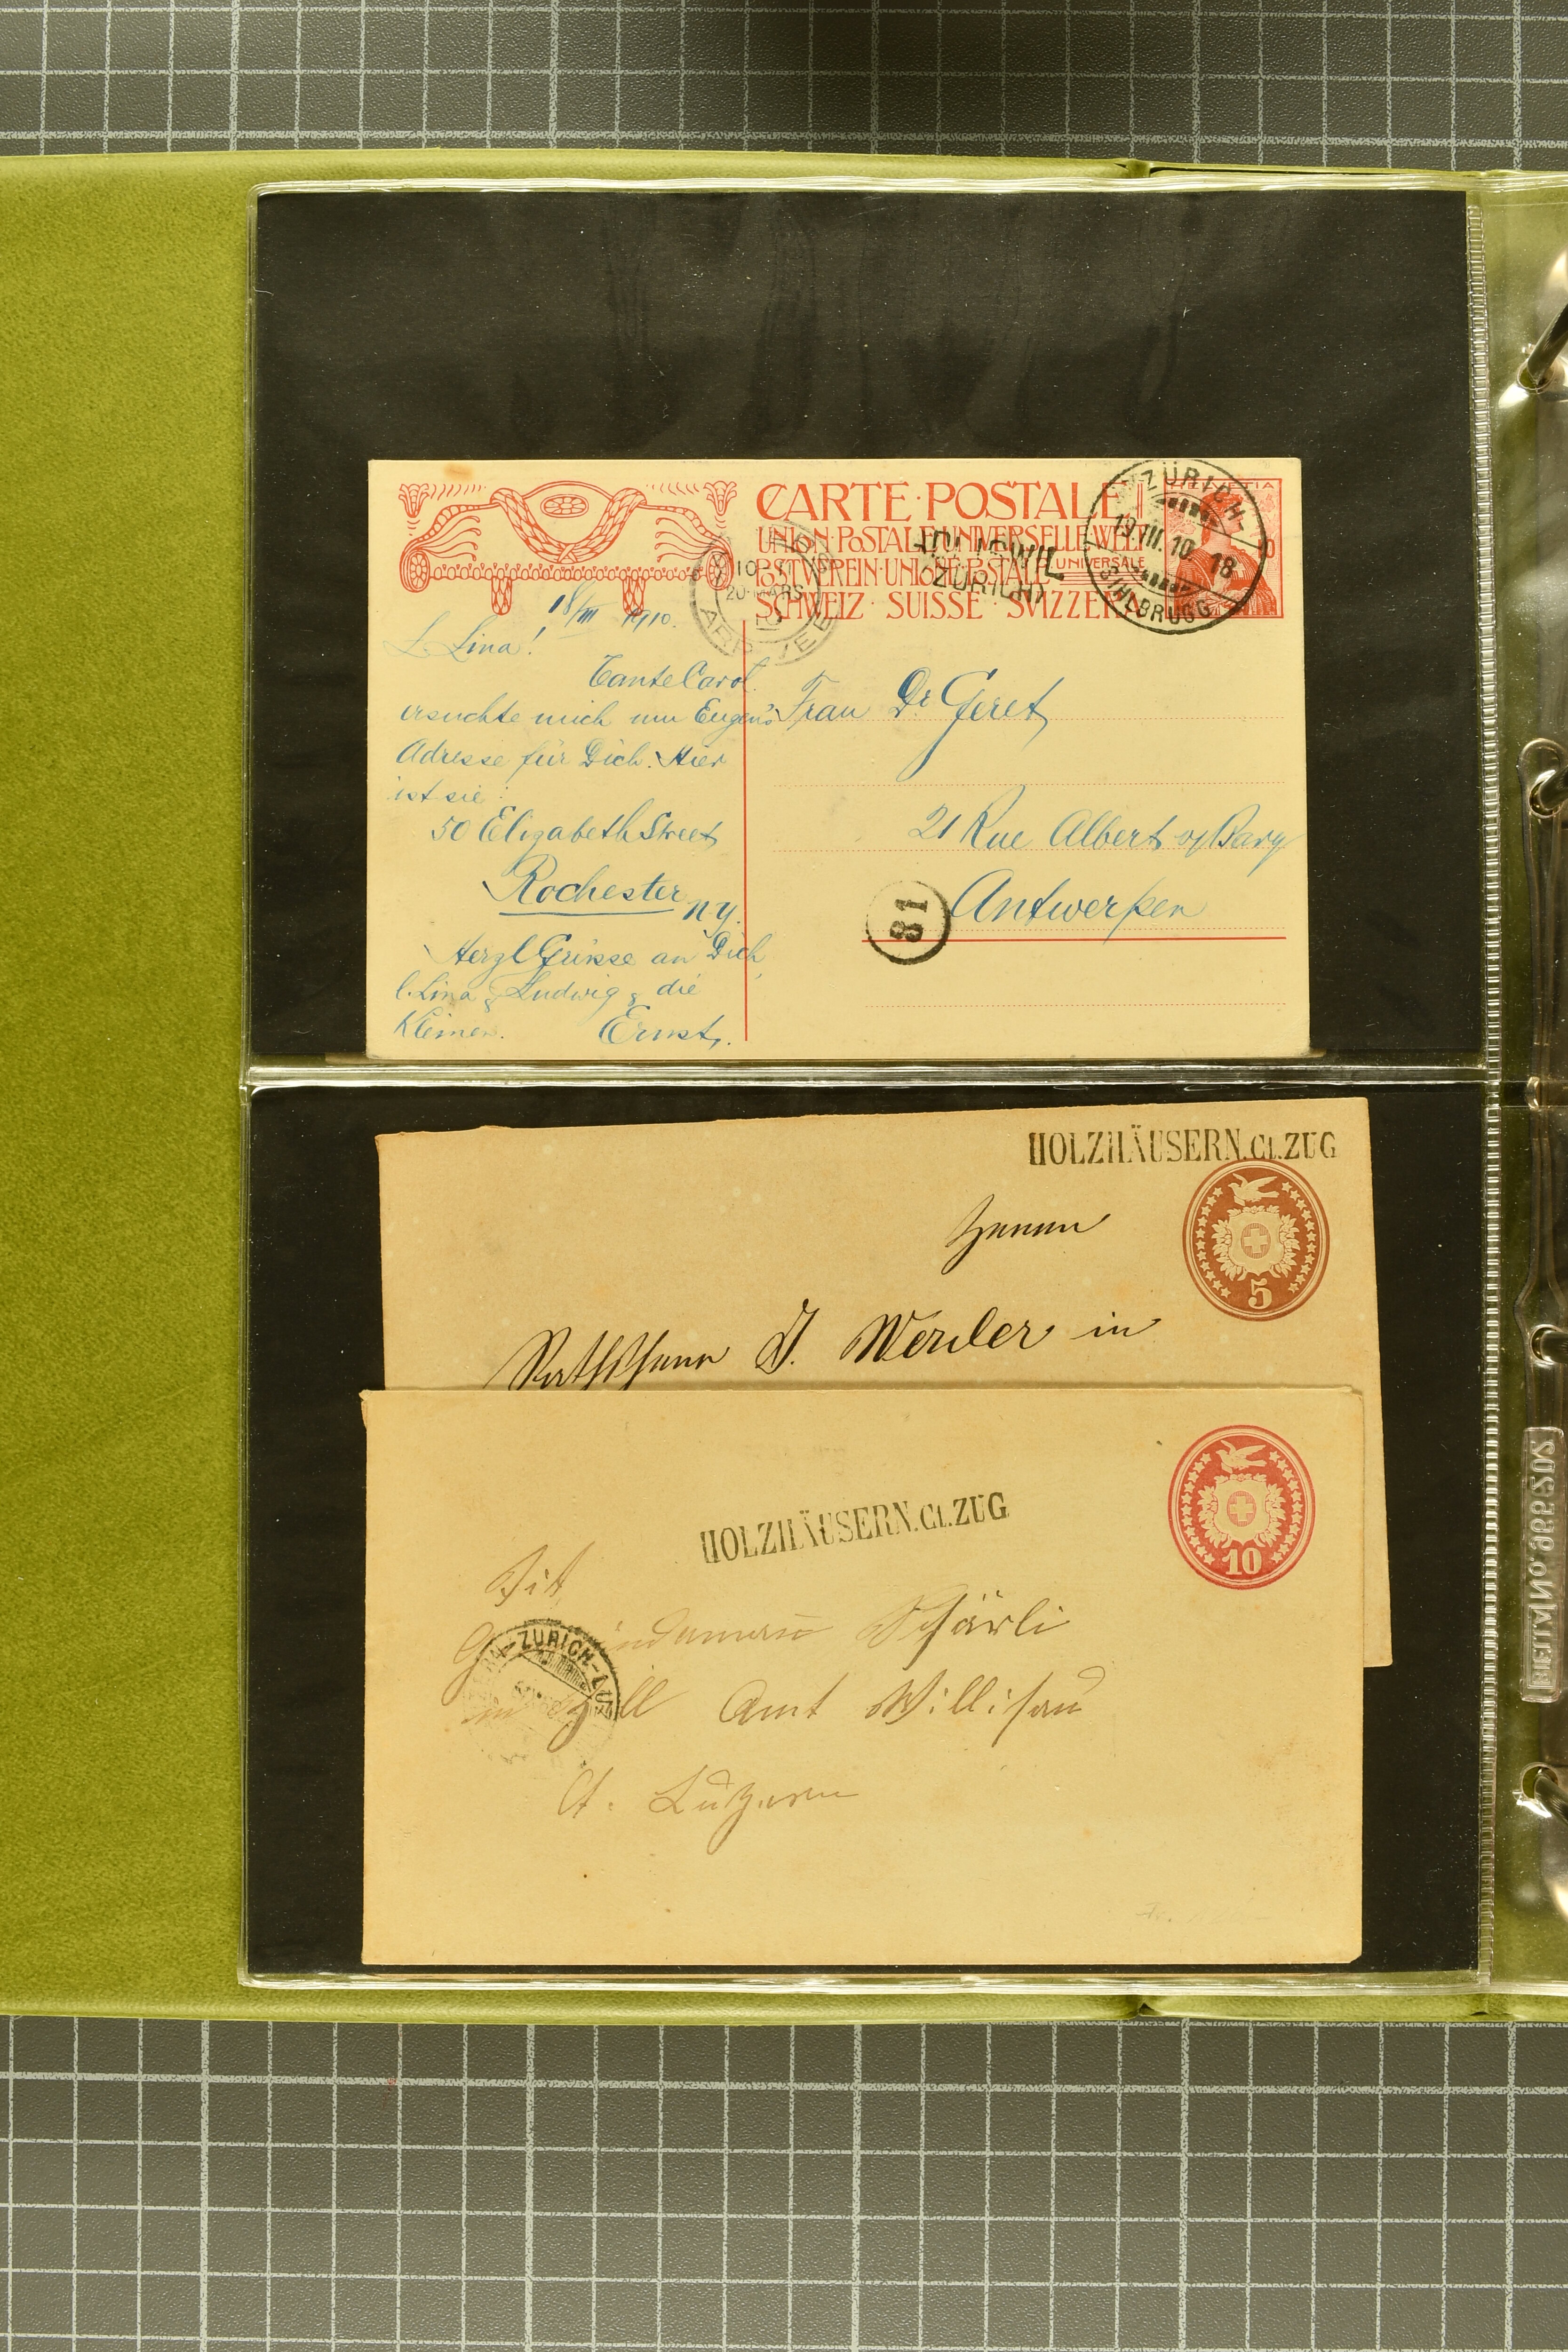 CARTE POSTALE
UNION POSTALE UNIVERSELLE WELT
POSTVEREIN UNIONE POSTALE UNIVERSALE
SCHWEIZ SUISSE SVIZZERA
ZÜRICH
19.III.10 18
SIHLBRUGG
ZÜRICH)
20 MARS
10
18/III 1910.
L. Lina!
Tante Carol.
ersuchte mich um Eugen's
Adresse für Dich. Hier
ist sie:
50 Elizabeth Street
Rochester N.Y.
Herzl Grüsse an Dich,
l. Lina & Ludwig & die
Kleinen. Ernst.
Frau Dr Geret
21 Rue Albert
Antwerpen
81
HOLZHÄUSERN.Ct.ZUG
5
Herrn
Rathsherr J. Werder in
HOLZHÄUSERN.Ct.ZUG
10
Tit
Schärli
ZÜRICH-LUZ
Amt Willisau
Ct. Luzern